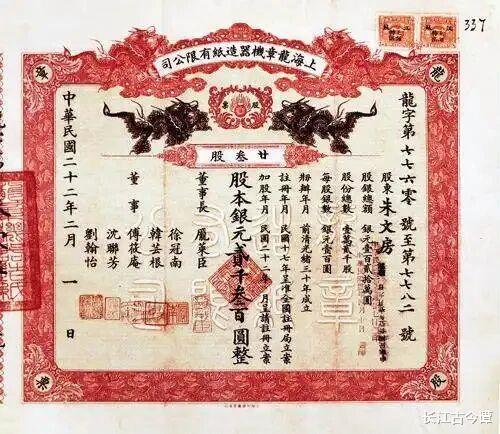 337
上海龍章機器造紙有限公司
股票
廿叁股
龍字第七七六零號至第七七八二號
股東 朱文房
股銀總額 銀元壹百貳拾萬圓
股份總數 壹萬貳千股
每股銀數 銀元壹百圓
年 前清光緒三十年成立
註冊年月 民國十七年 全國註冊局立案
加股年月 民國二十二年 月呈請註冊立案
股本銀元貳千叁百圓整
董事長 龐萊臣
董事 徐冠南
韓芸根
董事 傅筱庵
沈聯芳
劉翰怡
中華民國二十二年二月一日
龍
章
股
票
长江古今谭